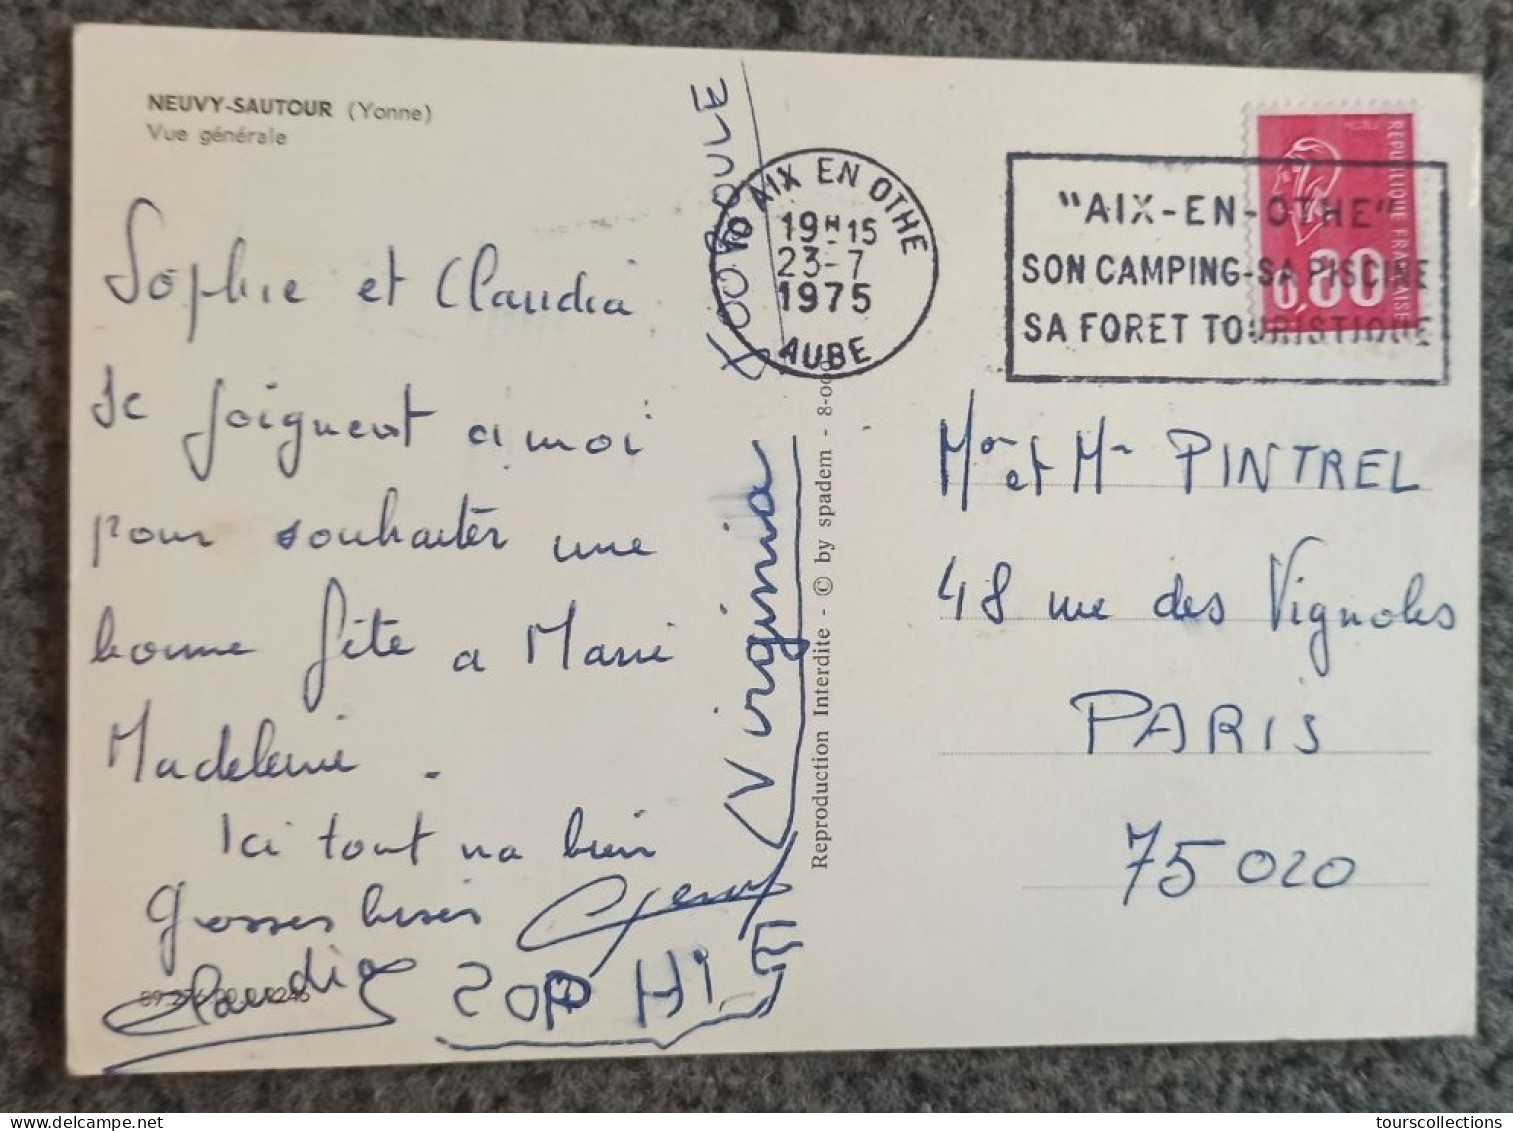 NEUVY-SAUTOUR (Yonne)
Vue générale
Sophie et Claudia
se joignent a moi
pour souhaiter une
bonne fête a Marie
Madeleine.
Ici tout va bien
Grosses bises
Claudia
SOPHIE
Virginia
10 AIX EN OTHE
19H15
23-7
1975
AUBE
"AIX-EN-OTHE"
SON CAMPING-SA PISCINE
SA FORET TOURISTIQUE
REPUBLIQUE FRANCAISE
0,80
Reproduction Interdite - © by spadem - 8-000
Mr et Mm PINTREL
48 rue des Vignoles
PARIS
75020
www.delcampe.net
tourscollections